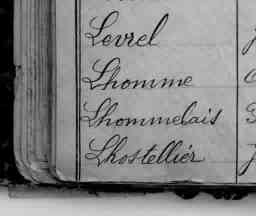 Levrel
Lhomme
Lhommelais
Lhostellier